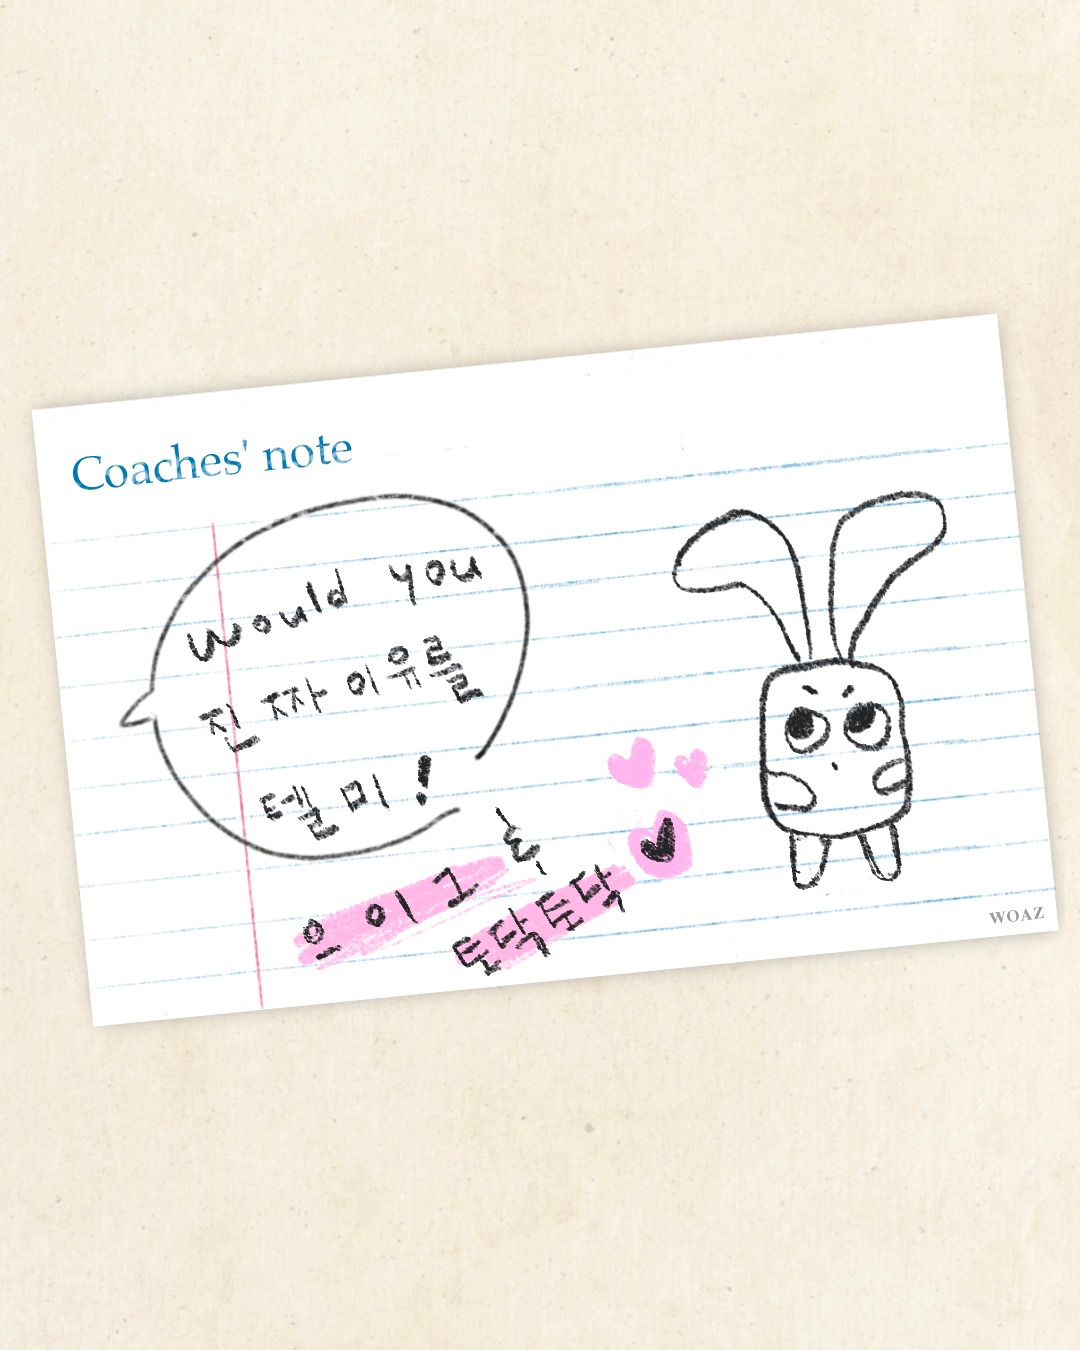 Coaches' note
would you
진짜 이유를
텔미!
으이그
토닥토닥
WOAZ